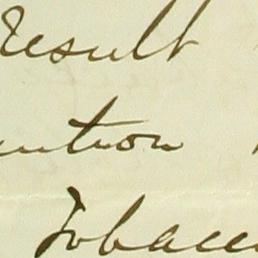 Result
ention
Tobacc